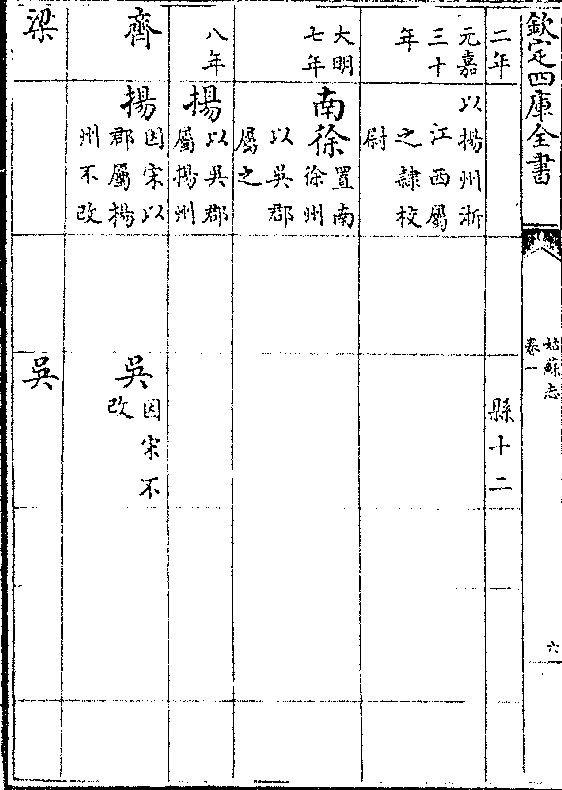 欽定四庫全書
姑蘇志
卷一
六
二年
縣十二
元嘉
三十
年
以揚州浙
江西屬
之隸校
尉
大明
七年
南徐
置南
徐州
以吳郡
屬之
八年
揚
以吳郡
屬揚州
齊
揚
因宋以
郡屬揚
州不改
吳
因宋不
改
梁
吳